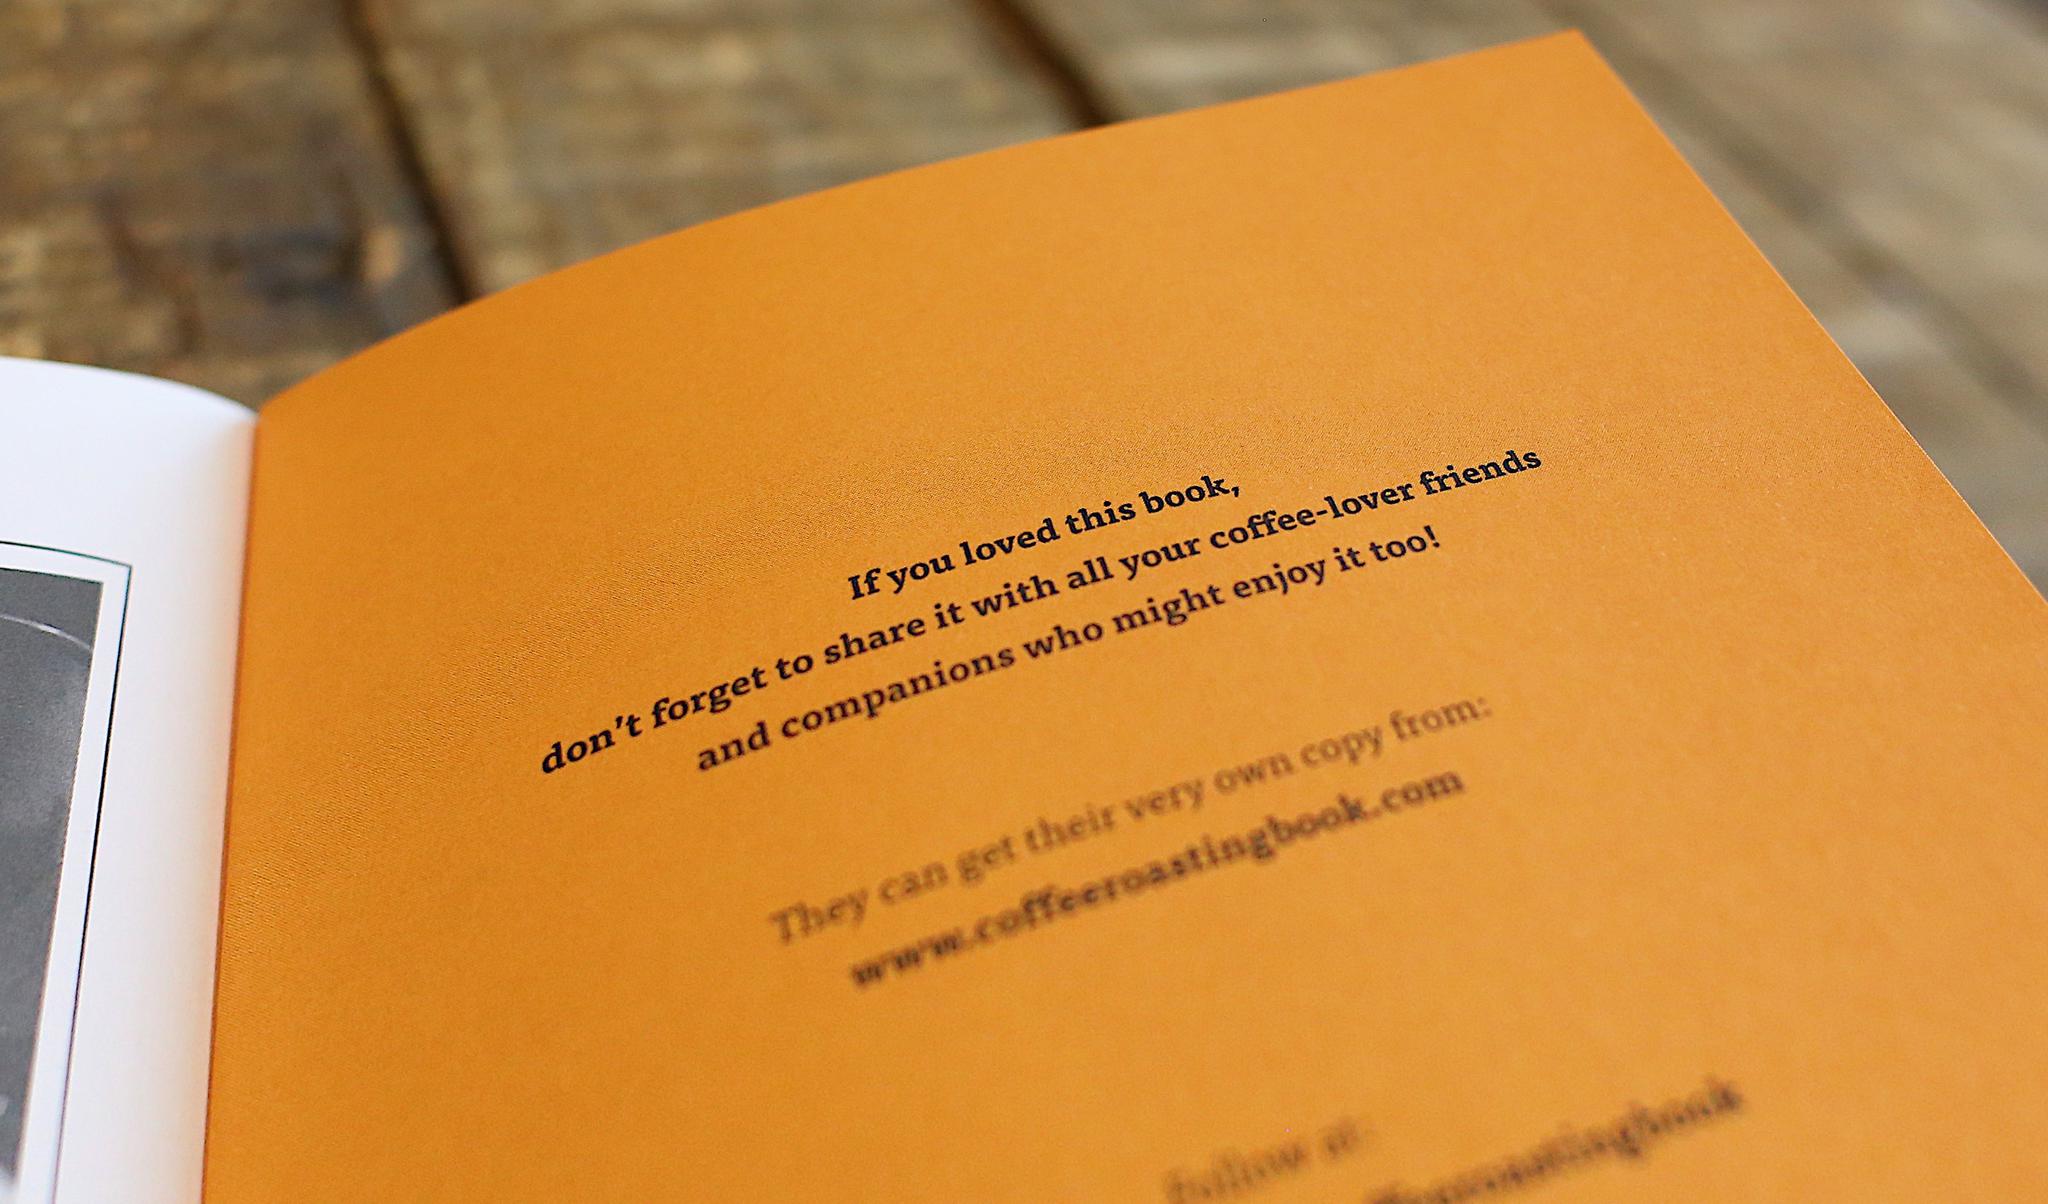 If you loved this book,
don't forget to share it with all your coffee-lover friends
and companions who might enjoy it too!
They can get their very own copy from:
www.coffeeroastingbook.com
Follow at: